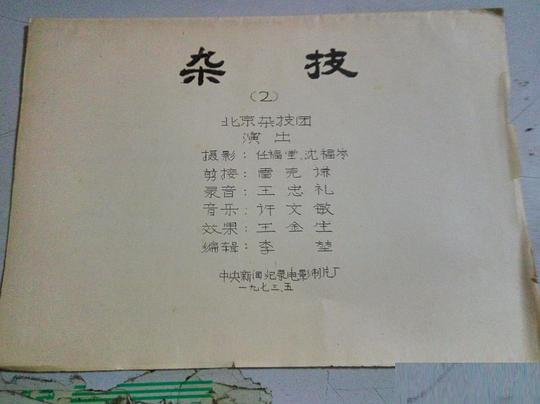 杂 技
(2)
北京杂技团
演 出
摄影：任福棠、沈福岑
剪接：雷 克
录音：王 忠 礼
音乐：许 文 敏
效果：王 金 生
编辑：李 堃
中央新闻纪录电影制片厂
一九七三.五